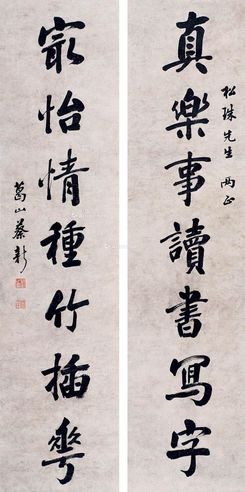 真樂事讀書寫字
松珠先生 兩正
寂怡情種竹插花
葛山蔡新